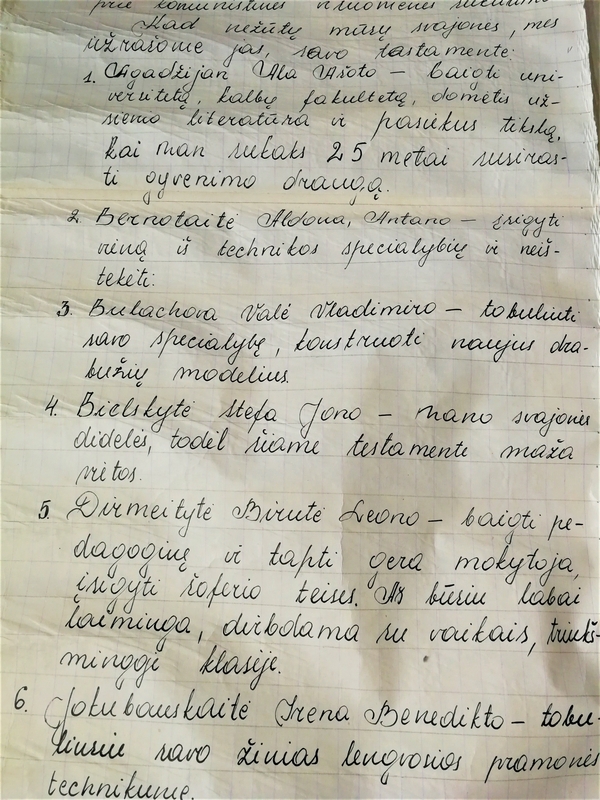 prie komunistinės visuomenės sukūrimo
Kad nežūtų mūsų svajonės, mes
užrašome jas, savo testamente:
1. Agadžijan Ala Ašoto – baigti uni-
versitetą, kalbų fakultetą, domėtis už-
sienio literatūra ir pasiekus tikslą,
kai man sukaks 25 metai susiras-
ti gyvenimo draugą.
2. Bernotaitė Aldona, Antano – įsigyti
vieną iš technikos specialybių ir neiš-
tekėti.
3. Bulachova Valė Vladimiro – tobulinti
savo specialybę, konstruoti naujus dra-
bužių modelius.
4. Bielskytė Stefa Jono – mano svajonės
didelės, todėl šiame testamente maža
vietos.
5. Dirmeitytė Birutė Leono – baigti pe-
dagoginę ir tapti gera mokytoja,
įsigyti šoferio teises. Aš būsiu labai
laiminga, dirbdama su vaikais, triukš-
minggi klasėje.
6. Jokubauskaitė Irena Benedikto – tobu-
linsiu savo žinias lengvosios pramonės
technikume.